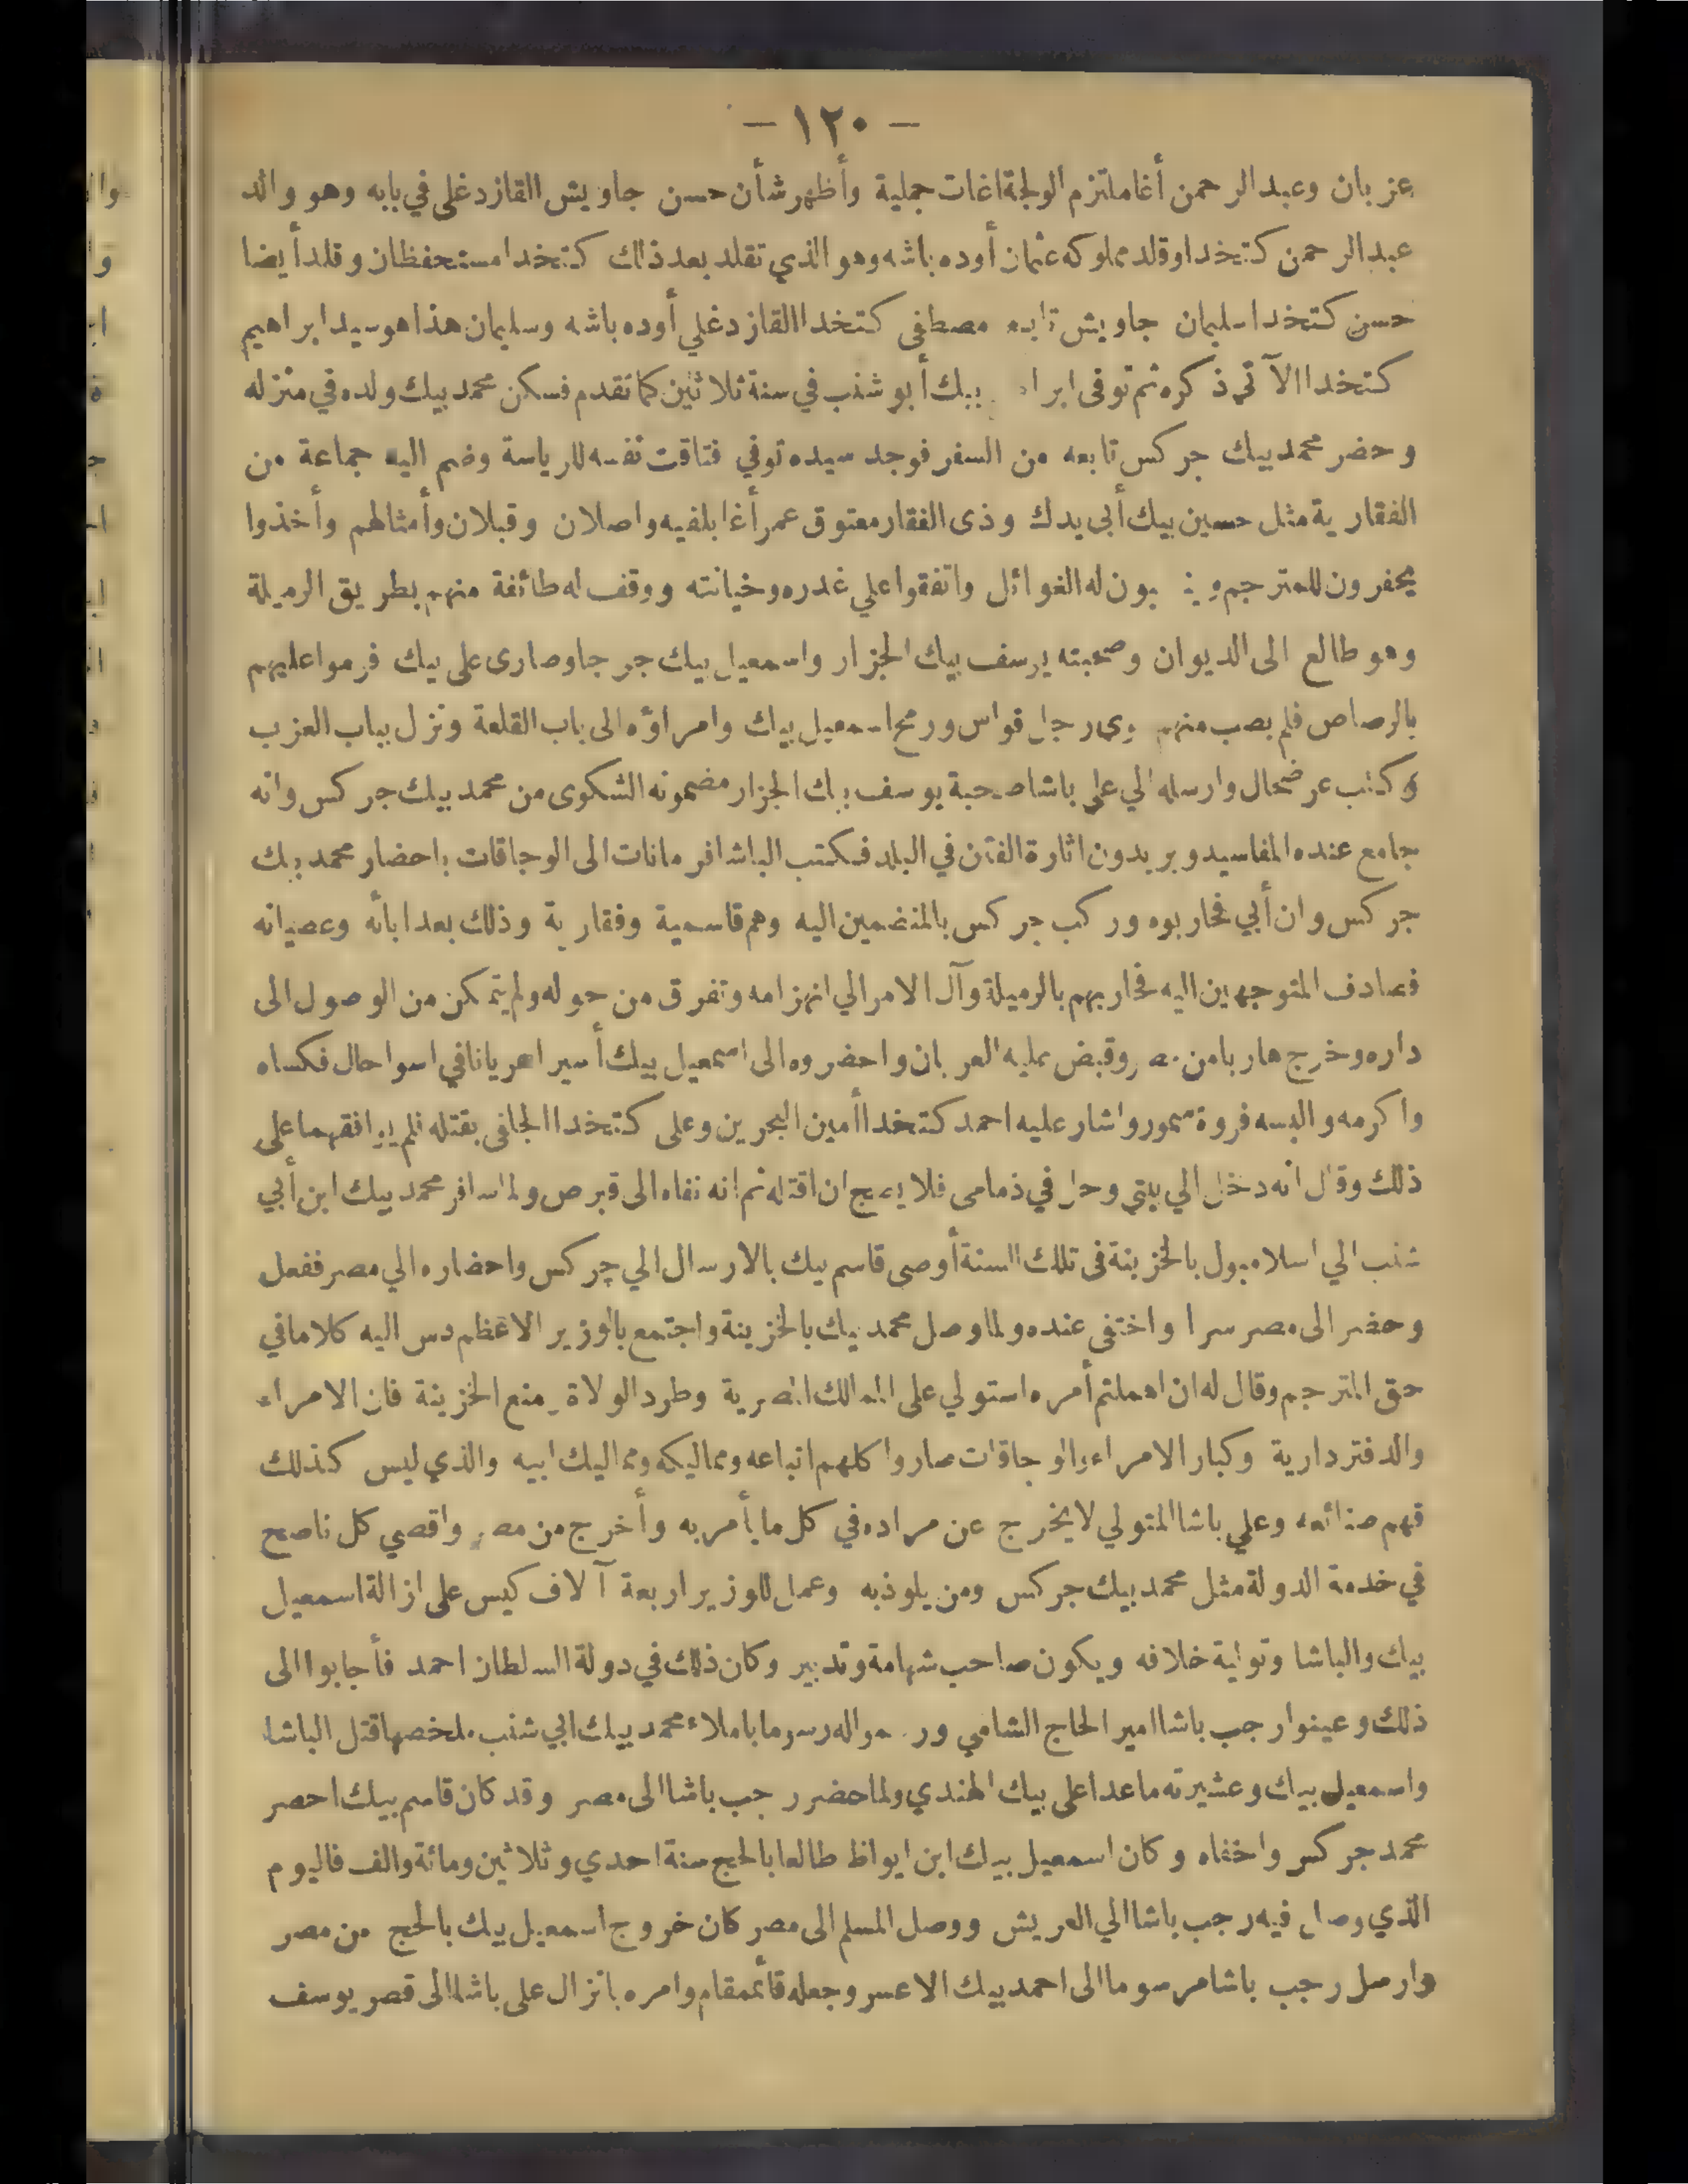 — ١٢٠ —
عزبان وعبد الرحمن أغا ملتزم الولجة اغات جملية وأظهر شأن حسن جاويش القازدغلى في بابه وهو والد
عبد الرحمن كتخدا وقلد مملوكه عثمان أوده باشه وهو الذي تقلد بعد ذلك كتخدا مستحفظان وقلد أيضا
حسن كتخدا سليمان جاويش تابع مصطفى كتخدا القازدغلي أوده باشه وسليمان هذا هو سيد ابراهيم
كتخدا الآتى ذكره ثم توفى بيك أبو شنب في سنة ثلاثين كما تقدم فسكن محمد بيك ولده في منزله
وحضر محمد بيك جركس تابعه من السفر فوجد سيده توفي فتاقت نفسه للرياسة وضم اليه جماعة من
الفقارية مثل حسين بيك أبى يدك وذى الفقار معتوق عمر أغا بلفيه واصلان وقبلان وأمثالهم وأخذوا
يحفرون للمترجم له الغوائل واتفقوا علي غدره وخيانته ووقف له طائفة منهم بطريق الرميلة
وهو طالع الى الديوان وصحبته يوسف بيك الجزار واسمعيل بيك جرجا وصارى على بيك فرموا عليهم
بالرصاص فلم يصب منهم سوى رجل قواس ورمح اسمعيل بيك وامراؤه الى باب القلعة ونزل بباب العزب
وكتب عرضحال وارسله الي علي باشا صحبة يوسف بيك الجزار مضمونه الشكوى من محمد بيك جركس وانه
جامع عنده المفاسيد ويريدون اثارة الفتن في البلد فكتب الباشا فرمانات الى الوجاقات باحضار محمد بيك
جركس وان أبي فحاربوه وركب جركس بالمنضمين اليه وهم قاسمية وفقارية وذلك بعد ابائه وعصيانه
فصادف المتوجهين اليه فحاربهم بالرميلة وآل الامر الي انهزامه وتفرق من حوله ولم يتمكن من الوصول الى
داره وخرج هاربا من مصر وقبض عليه العربان واحضروه الى اسمعيل بيك أسيرا عريانا في اسوا حال فكساه
واكرمه والبسه فروة سمور واشار عليه احمد كتخدا أمين البحرين وعلى كتخدا الجلفى بقتله فلم يوافقهما على
ذلك وقال انه دخل الي بيتي وحل في ذمامى فلا يصح ان اقتله ثم انه نفاه الى قبرص ولما سافر محمد بيك ابن أبي
شنب الي اسلامبول بالخزينة فى تلك السنة أوصى قاسم بيك بالارسال الي جركس واحضاره الي مصر ففعل
وحضر الى مصر سرا واختفى عنده ولما وصل محمد بيك بالخزينة واجتمع بالوزير الاعظم دس اليه كلاما في
حق المترجم وقال له ان اهملتم أمره استولي على الممالك المصرية وطرد الولاة ومنع الخزينة فان الامراء
والدفتردارية وكبار الامراء والوجاقات صاروا كلهم اتباعه ومماليكه ومماليك ابيه والذي ليس كذلك
فهم صنائعه وعلي باشا المتولي لا يخرج عن مراده في كل ما يأمر به وأخرج من مصر واقصي كل ناصح
في خدمة الدولة مثل محمد بيك جركس ومن يلوذ به وعمل للوزير اربعة آلاف كيس على ازالة اسمعيل
بيك والباشا وتولية خلافه ويكون صاحب شهامة وتدبير وكان ذلك في دولة السلطان احمد فأجابوا الى
ذلك وعينوا رجب باشا امير الحاج الشامي ورسموا له رسوما باملاء محمد بيك ابي شنب ملخصها قتل الباشا
واسمعيل بيك وعشيرته ما عدا على بيك الهندي ولما حضر رجب باشا الى مصر وقد كان قاسم بيك احصر
محمد جركس واخفاه وكان اسمعيل بيك ابن ايواظ طالعا بالحج سنة احدي وثلاثين ومائة والف فاليوم
الذي وصل فيه رجب باشا الي العريش ووصل المسلم الى مصر كان خروج اسمعيل بيك بالحج من مصر
وارسل رجب باشا مرسوما الى احمد بيك الاعسر وجعله قائممقام وامره بانزال على باشا الى قصر يوسف